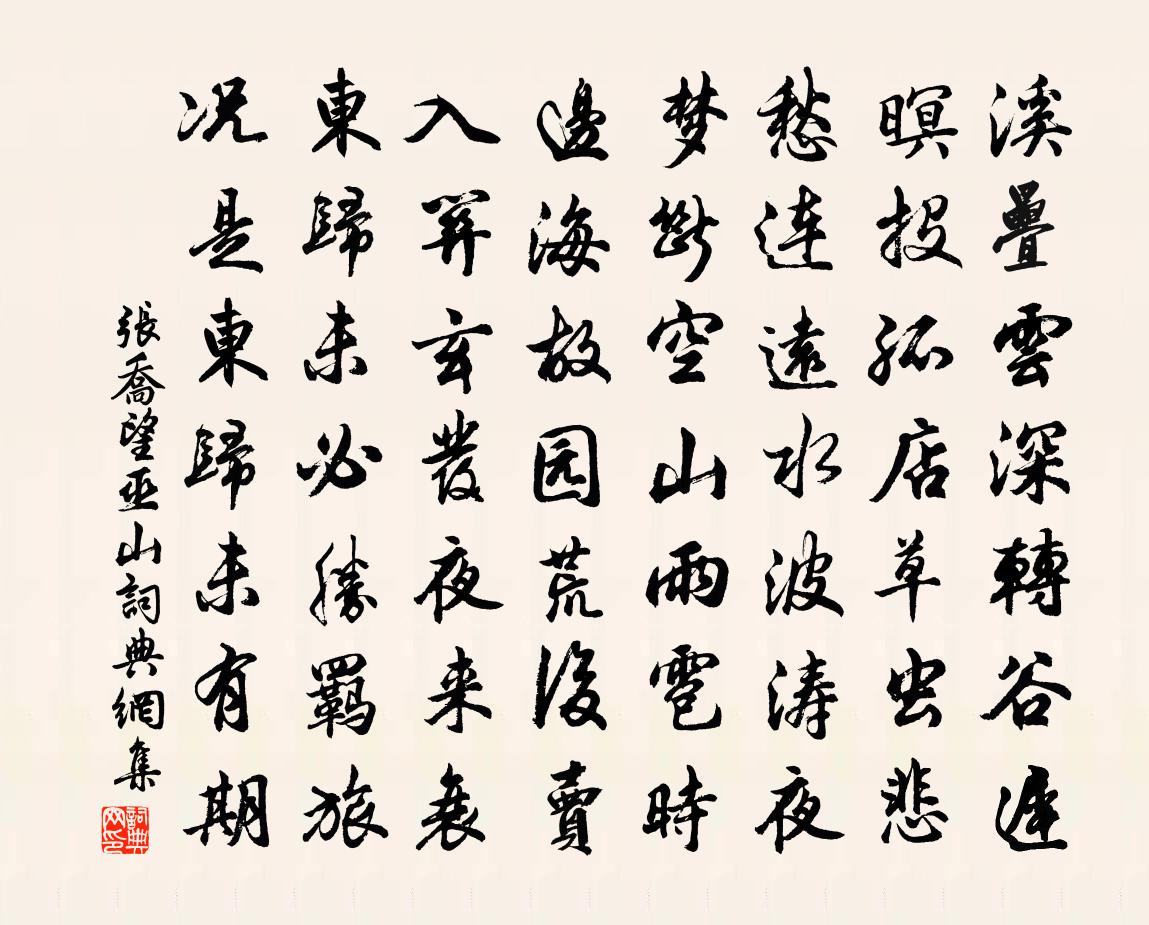 溪疊雲深轉谷遲
暝投孤店草虫悲
愁連遠水波涛夜
梦斷空山雨雹時
邊海故园荒後賣
入關玄發夜来衰
東歸未必勝羈旅
况是東歸未有期
張喬望巫山詞典網集
詞典网印